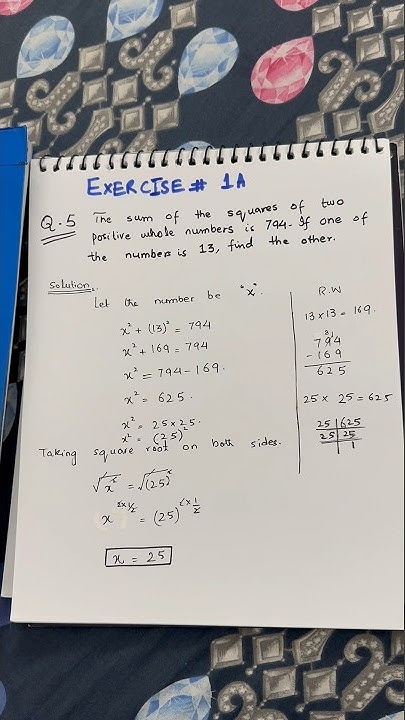 EXERCISE # 1A
Q.5 The sum of the squares of two
positive whole numbers is 794. If one of
the numbers is 13, find the other.
Solution:
Let the number be "x".
x² + (13)² = 794
x² + 169 = 794
x² = 794 - 169.
x² = 625.
x² = 25 × 25.
x² = (25)²
Taking square root on both sides.
√x² = √(25)²
x^(2×1/2) = (25)^(2×1/2)
x = 25
R.W
13 × 13 = 169.
794
- 169
625
25 × 25 = 625
25 | 625
25 | 25
| 1